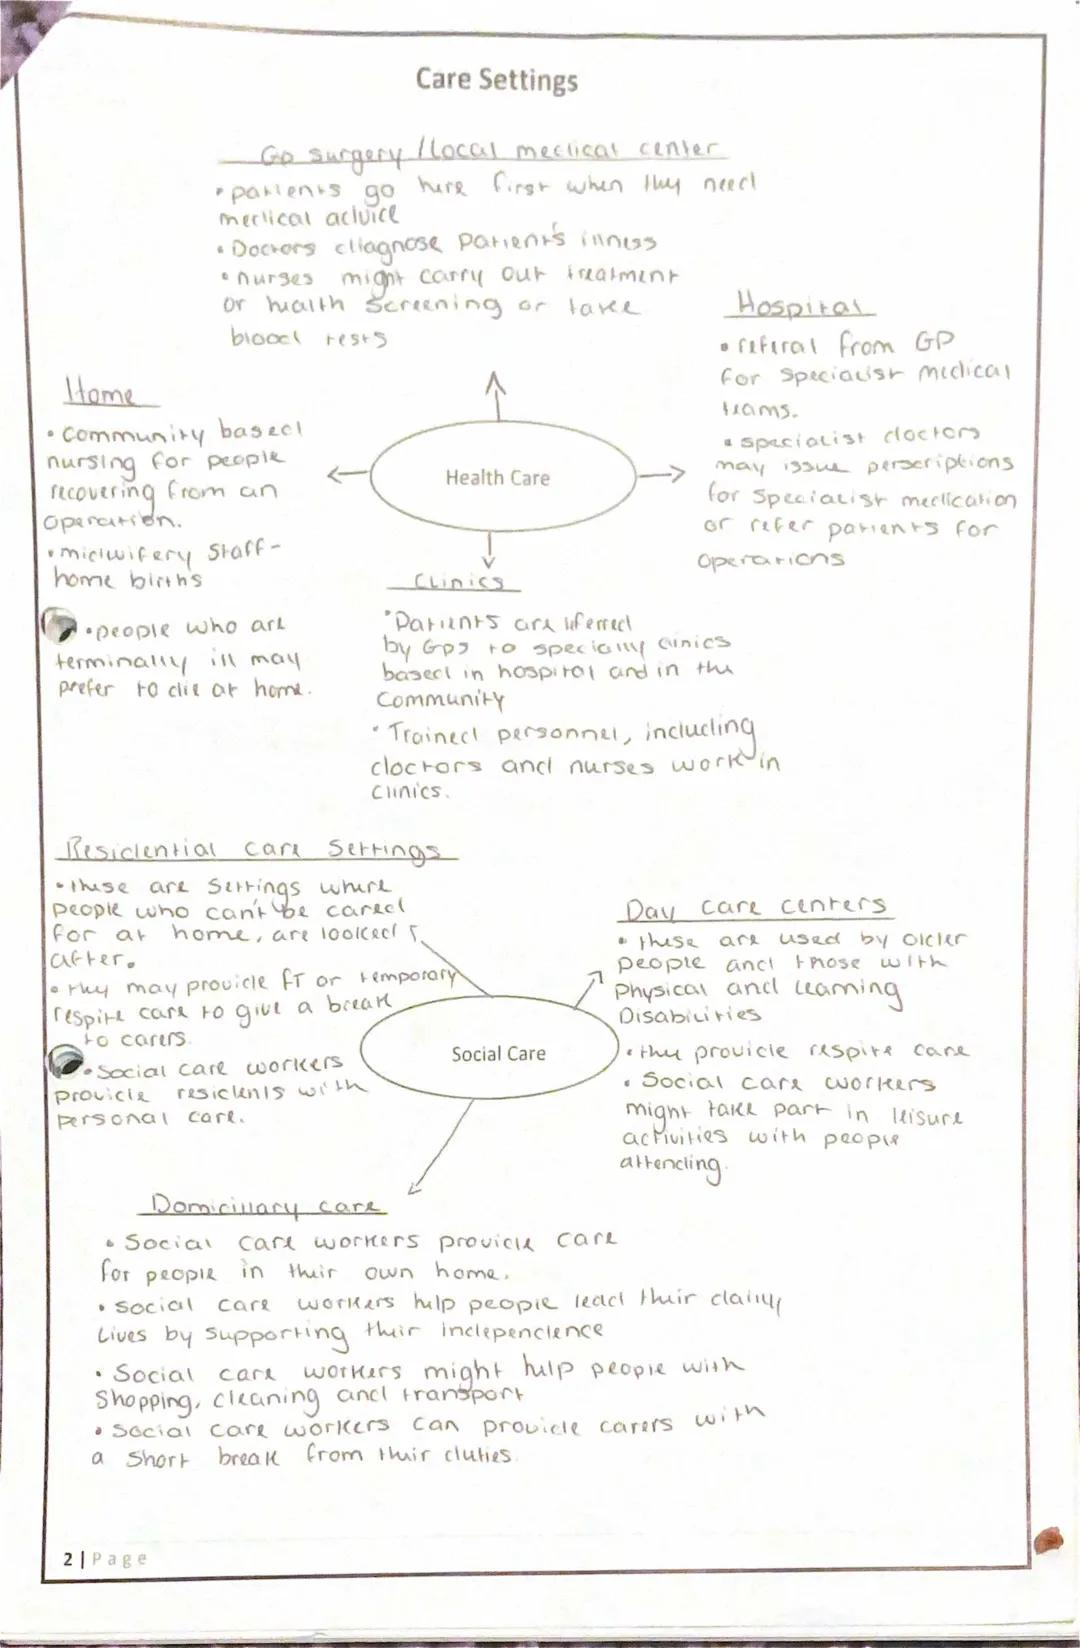 Care Settings
Gp surgery / local medical center
• patients go here first when they need
medical advice
• Doctors diagnose patient's illness
• nurses might carry out treatment
or health screening or take
blood tests
Hospital
• referal from GP
for specialist medical
teams.
• specialist doctors
may issue perscriptions
for specialist medication
or refer patients for
operations
Home
• community based
nursing for people
recovering from an
operation.
• midwifery staff -
home births
• people who are
terminally ill may
prefer to die at home.
Health Care
Clinics
• Patients are referred
by GPs to specialty clinics
based in hospital and in the
community
• Trained personnel, including
doctors and nurses work in
clinics.
Residential care settings
• these are settings where
people who can't be cared
for at home, are looked
after.
• they may provide FT or temporary
respite care to give a break
to carers.
• Social care workers
provide residents with
personal care.
Day care centers
• these are used by older
people and those with
Physical and learning
Disabilities
• they provide respite care
• Social care workers
might take part in leisure
activities with people
attending.
Social Care
Domicillary care
• Social care workers provide care
for people in their own home.
• social care workers help people lead their daily
lives by supporting their independence
• Social care workers might help people with
shopping, cleaning and transport
• Social care workers can provide carers with
a short break from their duties.
2 | Page